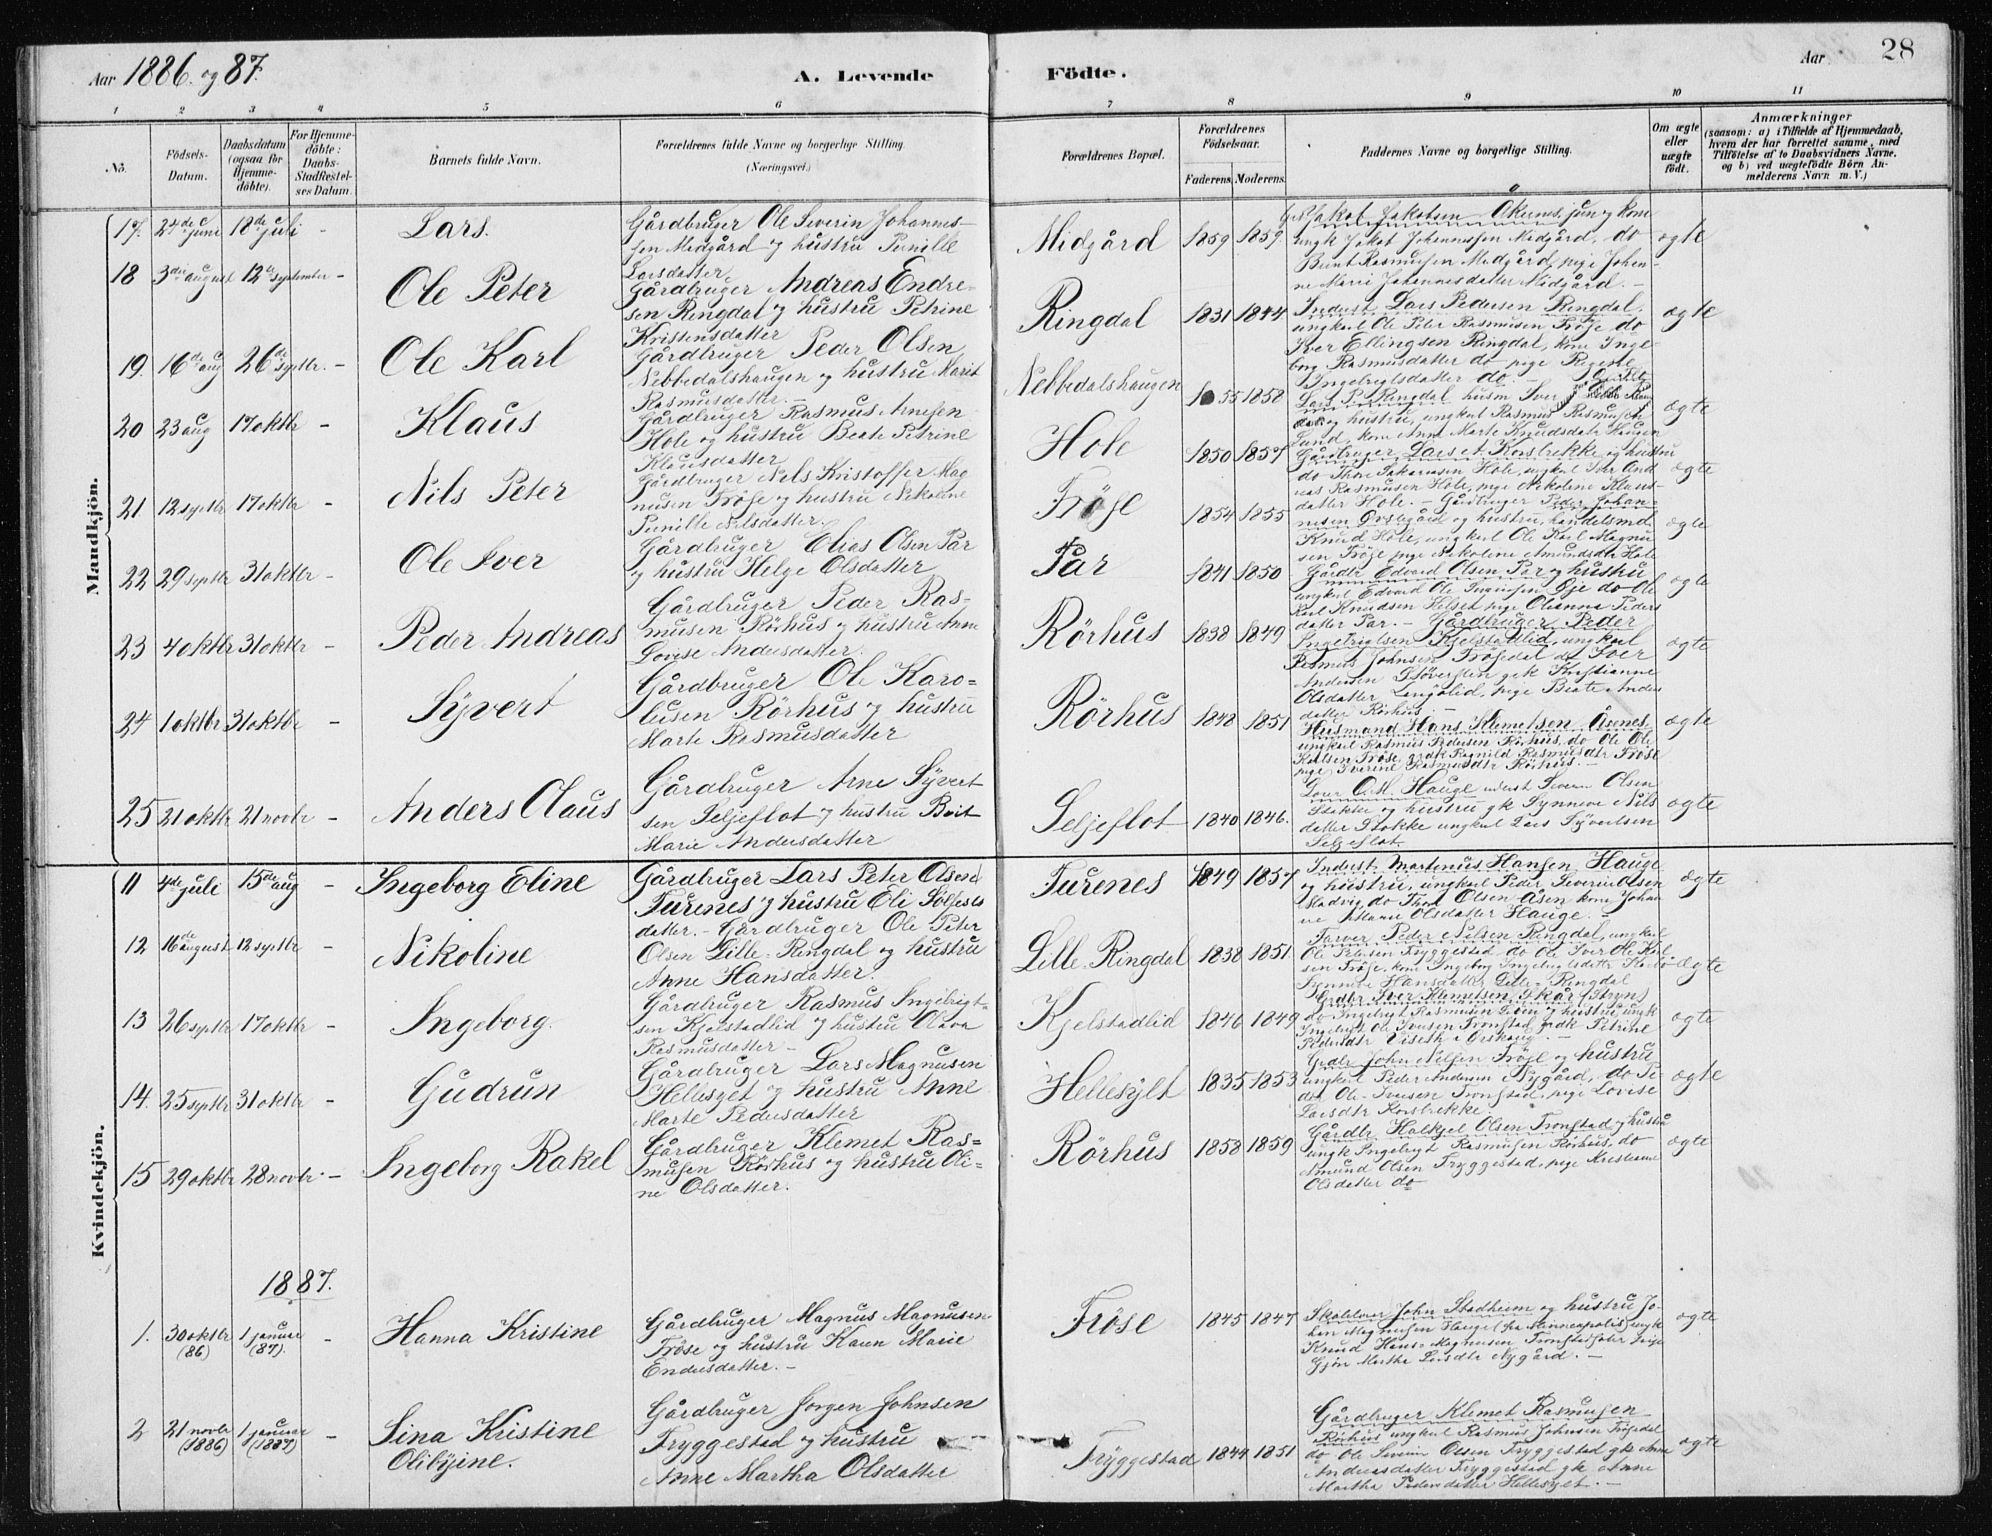 Aar 1886. og 87.
A. Levende Födte.
Aar 28
1 2 3 4 5 6 7 8 9 10 11
No.
Födsels-Datum.
Daabsdatum (ogsaa for Hjemme-döbte).
For Hjemme-döbte: Daabs-Stadfæstel-ses Datum.
Barnets fulde Navn.
Forældrenes fulde Navne og borgerlige Stilling. (Næringsvei.)
Forældrenes Bopæl.
Forældrenes Födselsaar.
Faderens. Moderens.
Faddernes Navne og borgerlige Stilling.
Om ægte eller uægte födt.
Anmærkninger
(saasom: a) i Tilfælde af Hjemmedaab, hvem der har forrettet samme, med Tilföielse af to Daabsvidners Navne, og b) ved uægtefödte Börn An-melderens Navn m. V.)
Mandkjön.
17. 24de juni 18de juli - Lars.
Gårdbruger Ole Severin Johannes-
sen Midgård og hustru Pernille
Larsdatter.
Midgård 1859 1859 ægte
ungk Jakob Johannessen Midgård, do
Bernt Rasmussen Midgård, pige Johan-
ne Marie Johannesdatter Midgård. -
18 3die august 12te september - Ole Peter
Gårdbruger Andreas Endre-
sen Ringdal og hustru Petrine
Kristensdatter
Ringdal 1831 1844 ægte
Inderst Lars Pedersen Ringdal,
ungkarl Ole Peter Rasmussen Fröse do
Iver Ellingsen Ringdal, kone Inge-
borg Rasmusdatter do pige Regine
Ingebrigtsdatter do. -
19. 16de aug 26de septbr. - Ole Karl
Gårdbruger Peder Olsen
Nebbedalshaugen og hustru Marit
Rasmusdatter. -
Nebbedalshaugen 1855 1858 ægte
Lars P. Ringdal husm Iver
og hustru, ungkarl Rasmus Rasmussen
Lund, kone Anne Marte Knudsdatr Hausen
20 23 aug 17 oktbr - Klaus
Gårdbruger Rasmus Arnesen
Hole og hustru Beate Petrine
Klausdatter
Hole 1850 1857 ægte
Gårdbruger Lars et Korsbrekke og hustru
do Thore Sakariassen Hole, ungkarl Iver And
reas Rasmussen Hole, pige Nikoline Klaus-
datter Hole. -
21 12 septbr 17 oktbr - Nils Peter
Gårdbruger Nils Kristoffer Mag
nusen Fröse og hustru Nikoline
Pernille Nilsdatter.
Fröse 1854 1855 ægte
Gårdbruger Peder Johan-
nesen Ørstegård og hustru, handelsmd.
Knud Hole, ungkarl Ole Karl Magnu
sen Fröse pige Nikoline Amundsdr Hole
22 29 septbr 31 oktbr - Ole Iver
Gårdbruger Elias Olsen Par
og hustru Helge Olsdatter
Par 1841 1850 ægte
Gårdbr Edvard Olsen Par og hustru
ungkarl Edvard Ole Iversen Øje do Ole
Karl Knudsen Helset pige Olianna Peders
datter Par. -
23 4 oktbr 31 oktbr - Peder Andreas
Gårdbruger Peder Ras-
musen Rörhus og hustru Anne
Lovise Andersdatter.
Rörhus 1838 1849 ægte
Gårdbruger Peder
Ingebrigtsen Kjelstadlid, ungkarl
Rasmus Johnsen Frösedal do Iver
Olsdatter Langslid, pige Beate Anders
datter Rörhus. -
24 1 oktbr 31 oktbr - Syvert
Gårdbruger Ole Karo-
lusen Rörhus og hustru
Marte Rasmusdatter
Rörhus 1848 1851 ægte
Husmand Hans Klemetsen Åsenes,
ungkarl Rasmus Pedersen Rörhus, do Ole Ole
Karlsen Fröse, gk Ragnild Rasmusdtr Fröse
pige Iverine Rasmusdtr Rörhus. -
25 21 oktbr 21 novbr - Anders Olaus
Gårdbruger Arne Syvert
sen Seljeflot og hustru Brit
Marie Andersdatter
Seljeflot 1840 1846. ægte
Lars O. M. Hauge inderst Severin Olsen
Stokke og hustru gk Synneve Nils
datter Stokke ungkarl Lars Syvertsen
Seljeflot
Kvindekjön.
11 4de juli 15de aug - Ingeborg Eline
Gårdbruger Lars Peter Olsen
Furenes og hustru Eli Sölfest
datter. -
Furenes 1849 1857 ægte
Inderst Martinus Hansen Hauge
og hustru, ungkarl Peder Severin Olsen
Stadvig, do Thor Olsen Åsen kone Johan
ne Marie Olsdatter Hauge. -
12 16de august 12 septbr - Nikoline
Gårdbruger Ole Peter
Olsen Lille-Ringdal og hustru
Anne Hansdatter.
Lille-Ringdal 1838 1851. ægte
Farver Peder Nilsen Ringdal, ungkarl
Ole Petersen Tryggestad do Ole Iver Ole Karl
sen Fröse, kone Ingeborg Ingebrigtsdatter
Synneve Hansdatter Lille-Ringdal
13 26 septbr 17 oktbr - Ingeborg.
Gårdbruger Rasmus Ingebrigt-
sen Kjelstadlid og hustru Olava
Rasmusdatter -
Kjelstadlid 1846 1849 ægte
Grdbr Iver Klemetsen Skår (Stryn)
do Ingebrigt Rasmussen Lien og hustru ungk
Ingebrigt Ole Iversen Tronstad gdk Petrine
Pedersdtr Viseth i Ørskoug. -
14. 25 septbr 31 oktbr - Gudrun
Gårdbruger Lars Magnusen
Hellesyet og hustru Anne
Marte Pedersdatter
Hellesylt 1835 1853 ægte
Grdbr John Nilsen Fröse og hustru
ungkarl Peder Andersen Nygård, do Pe
der Ole Iversen Tronstad, pige Lovise
Larsdtr Korsbrekke.
15 29 oktbr 28 novbr. - Ingeborg Rakel
Gårdbruger Klemet Ras-
musen Rörhus og hustru Oli-
ne Olsdatter.
Rörhus 1858 1859 ægte
Gårdbr Halkjel Olsen Tronstad og hustru
ungk Ingebrigt Rasmussen Rörhus, do
Amund Olsen Tryggestad, pige Kristianne
Olsdatter do
1887.
1. 30 oktbr (86) 1 januar (87). - Hanna Kristine
Gårdbruger Magnus Magnusen
Fröse og hustru Karen Marie
Endresdatter. -
Fröse 1845 1847 ægte
Skolelærer John Stadheim og hustru Jo-
han Magnusen Haugel fra Minneapolis, ungk
Knud Hans Magnusen Tronstad
Gjøre Martha Larsdtr Nygård. -
2 21 novbr (1886) 1 januar (1887) - Sina Kristine
Olibjine.
Gårdbruger Jorgen Johnsen
Tryggestad og hustru
Anne Martha Olsdatter
Tryggestad 1844 1851 ægte
Gårdbruger Klemet Rasmusen
Rörhus ungkarl Rasmus Johnsen Frösedal
do Ole Severin Olsen Tryggestad gk Anne
Andreasdatter Tryggestad gk Anne
Martha Pedersdatter Hellesyet. -